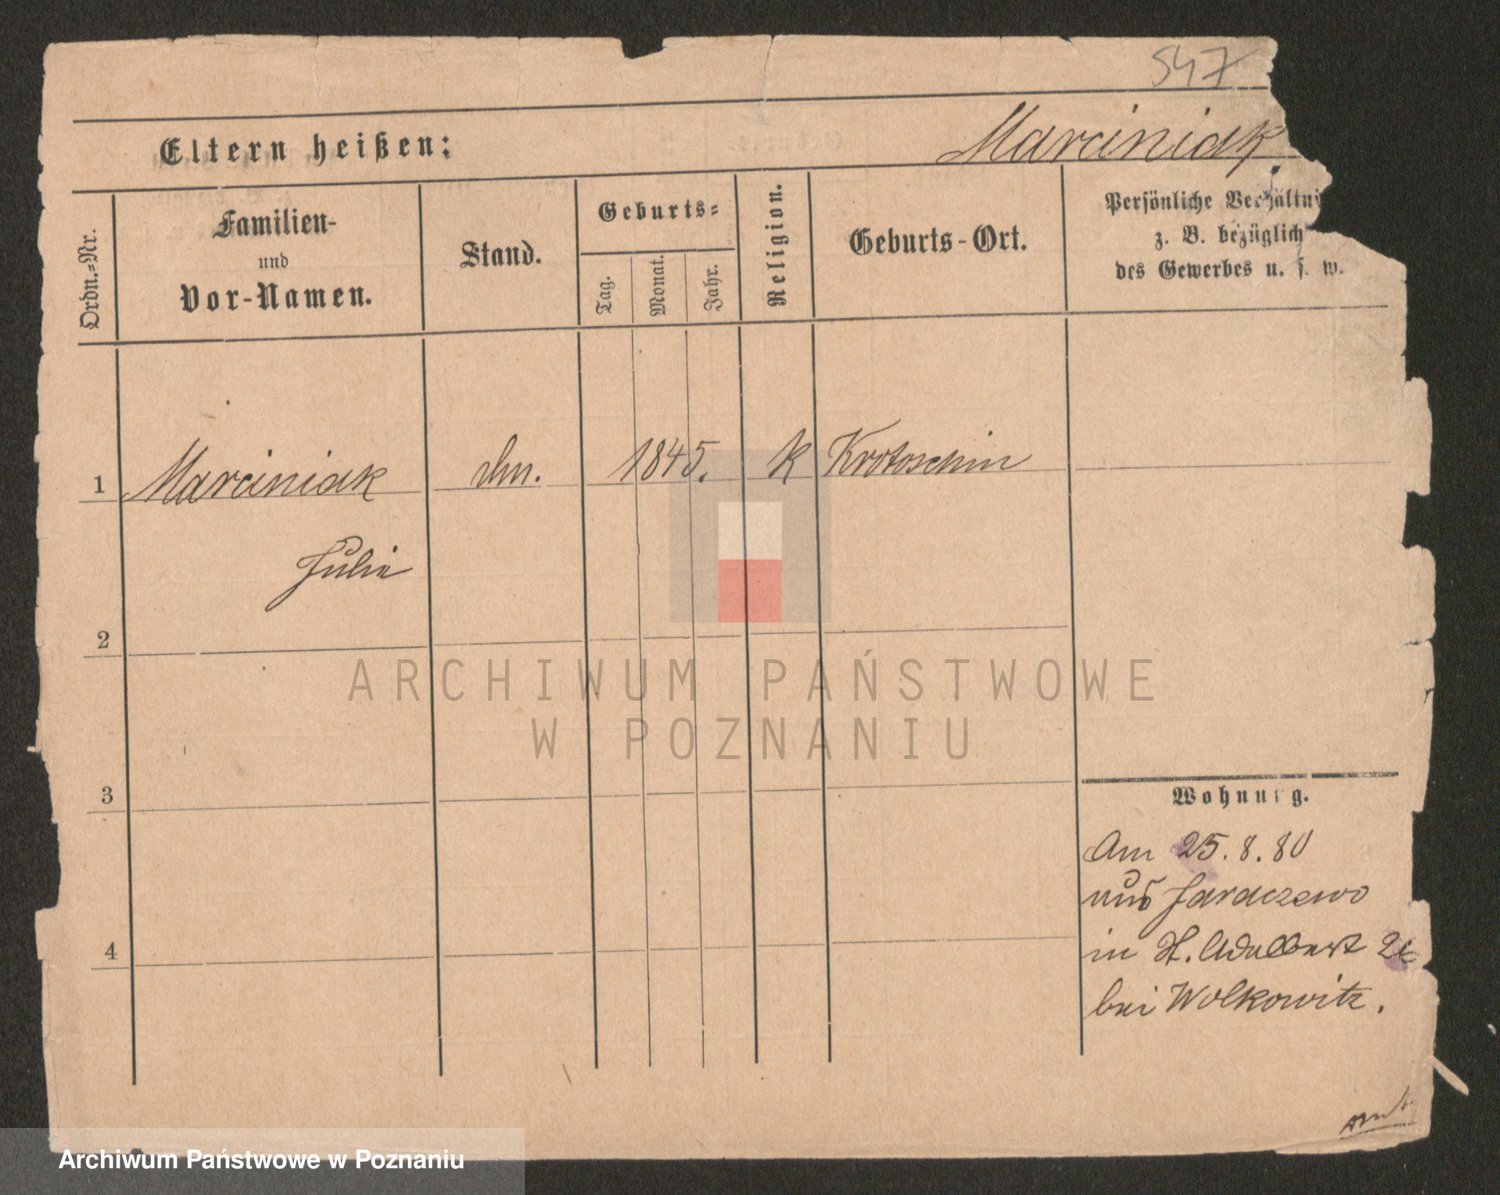 547
Eltern heißen:
Marciniak
Ordn.=Nr.
Familien-
und
Vor-Namen.
Stand.
Geburts=
Tag.
Monat.
Jahr.
Religion.
Geburts-Ort.
Persönliche Verhältni
z. B. bezüglich
des Gewerbes u. s. w.
1 Marciniak 1845. k Krotoschin
Julie
2
3
4
Wohnung.
Am 25.8.80
aus Jaraczewo
in St. Adalbert
bei Wolkowitz.
ARCHIWUM PAŃSTWOWE
W POZNANIU
Archiwum Państwowe w Poznaniu